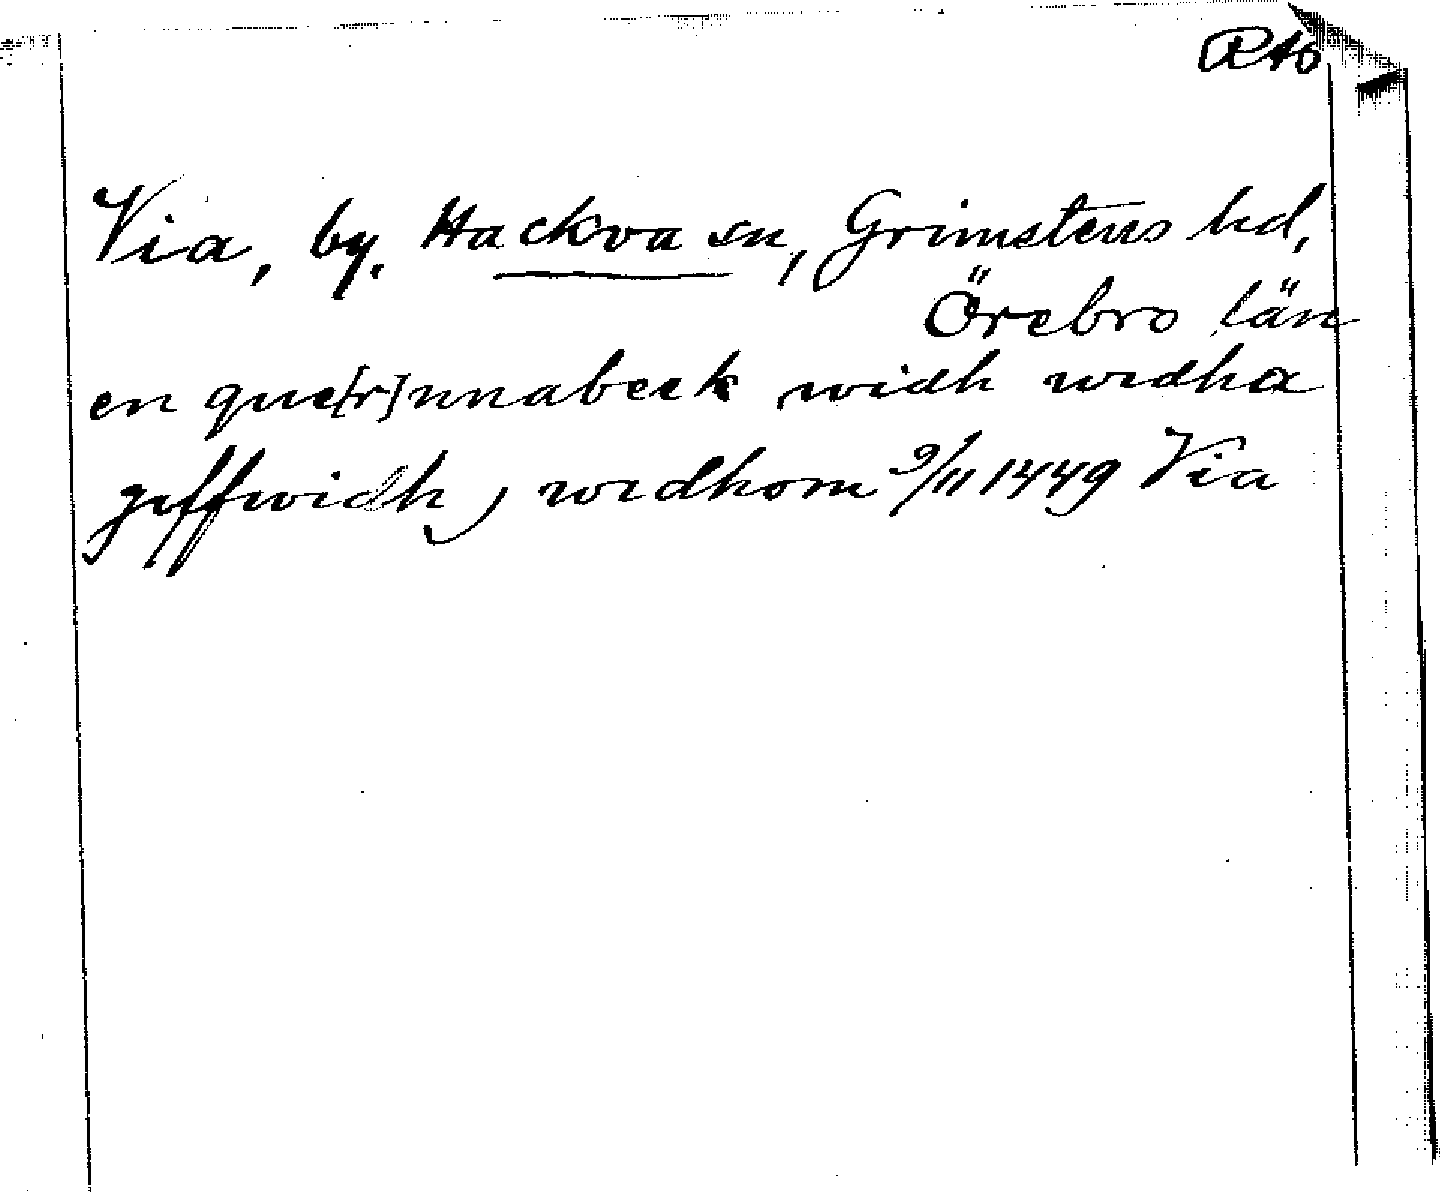 RAo
Via, by, Hackva sn, Grimstens hd,
Örebro län
en que[r]nnabeck widh widha
geffwidh, widhom 9/11 1449 Via